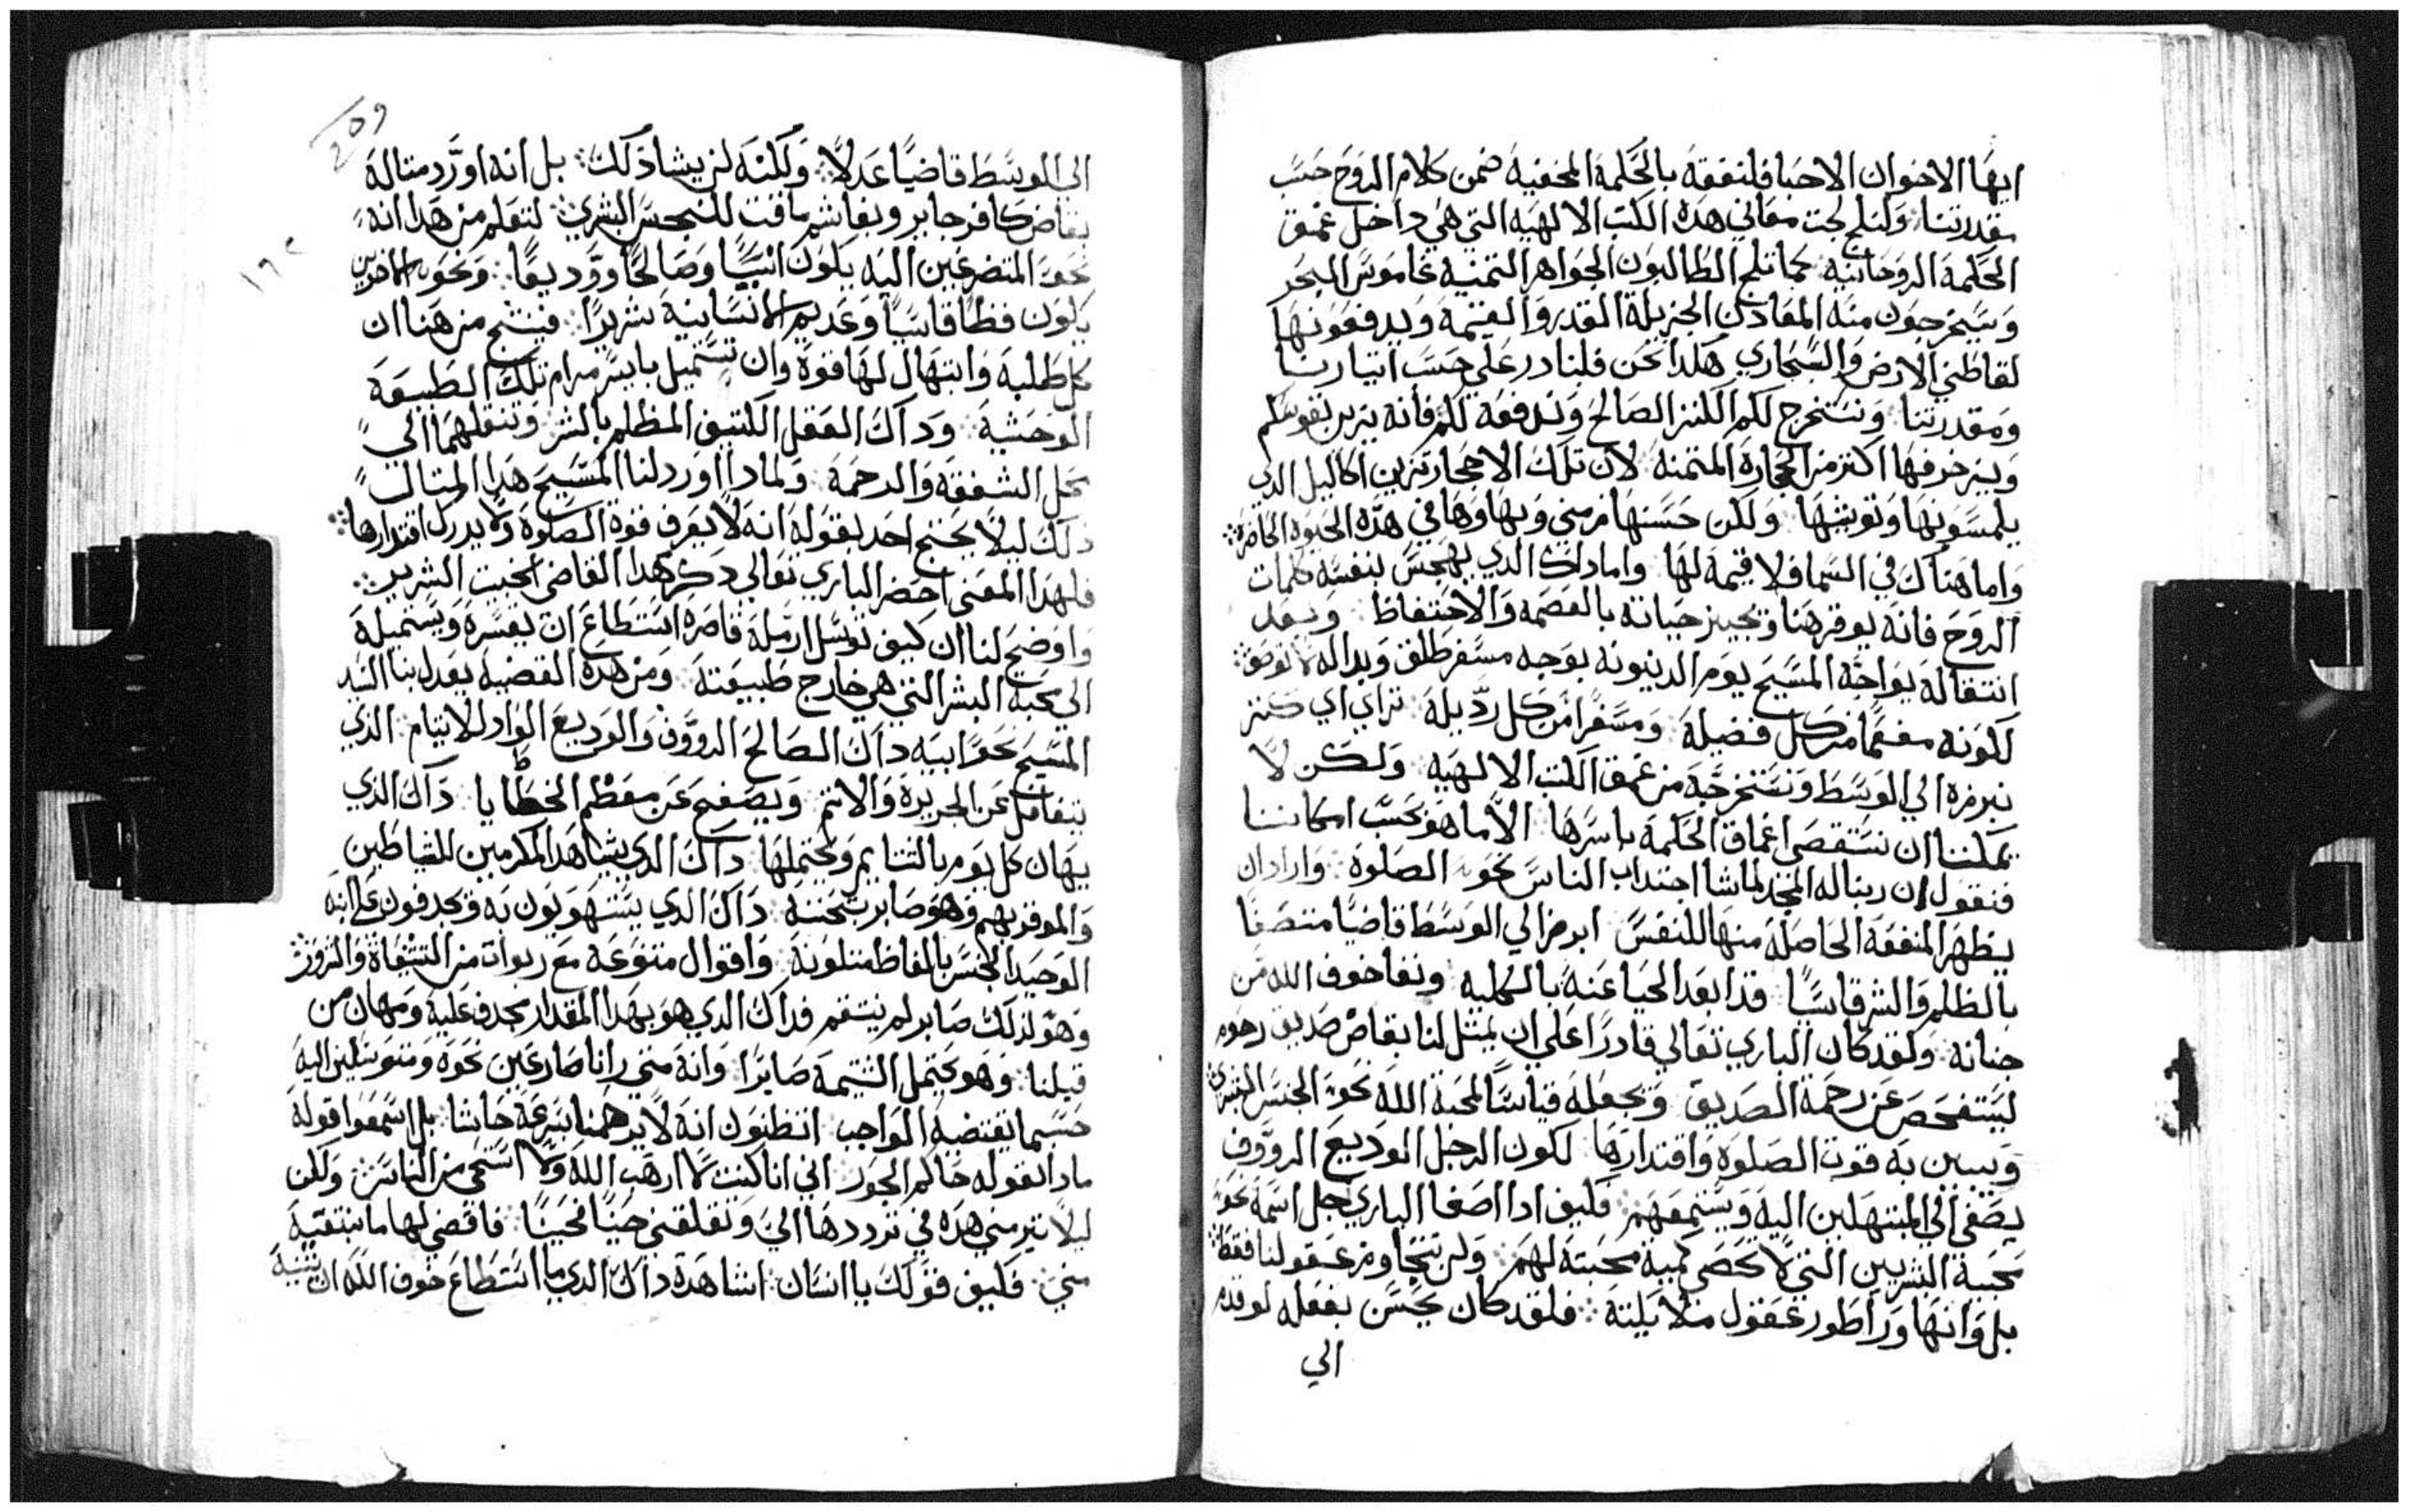 ايها الاخوان الاحبا فلنفقه بالحكمة المخفيه ضمن كلام الروح حسب
مقدرتنا: ولنلج لجت معاني هده الكتب الالهيه التي هي داخل عمق
الحكمة الروحانيه كما تلج الطالبون الجواهر التمنيه غاموس البحر
ويستخرجون منه المعادن الجزيلة القدر والقيمة ويدفعونها
لقاطني الارض والسجاري هكدا نحن فلنادر علي حسب
ومقدرتنا ونستخرج لكم الكنز الصالح وندفعه لكم فأنه يزين نفوسكم
ويزخرفها اكتر من الحجارة المتمنة لان تلك الاحجار تزين اكاليل الدي
يلمسونها ولكن حسنها زمني وبهاوها في هده الحيوة الحاضرة
واما هناك في السما فلا قيمة لها واما داك الدي يهجس لنفسه كلمات
الروح فانه يوقر هنا حياته بالعصمه والاحتفاظ وبعد
انتقاله يواجه المسيح يوم الدينونه بوجه مسفر طلق وبدالة لا توصف
لكونه مفعما من كل فضيلة ومسفرا من كل رديلة تراي اي كنز
نبرزه الي الوسط ونستخرجه من عمق الكتب الالهيه ولكن لا
يمكننا ان نستقصي اعماق الحكمة باسرها الا ما هو بحسب امكاننا
فنقول ان ربنا له المجد لما شا اجتداب الناس نحو الصلوة واراد ان
يظهر المنفعة الحاصلة منها للنفس ابرز الي الوسط قاضيا متصفا
بالظلم والشر قاسيا قد ابعد الحيا عنه بالكلية ونفا خوف الله من
جنانه ولقد كان الباري تعالي قادرا علي ان يمثل لنا بقاض صديق رحوم
ليستفحص عن رحمة الصديق ويجعله قياسا لمحبة الله نحو الجنس البشري
ويبين به قوت الصلوة واقتدارها لكون الرجل الوديع الرووف
يصغي الي المبتهلين اليه ويستمعهم فكيف ادا اصغا الباري جل اسمة نحو
محبة البشريين التي لا تحصي كمية محبته لهم ولن تتجاوز عقولنا فقط
بل وانها ورا طور عقول ملايكته: فلقد كان يحسن بفعله لو قدم
الي
209
١٩٢
الي الوسط قاضيا عدلا ولكنه لن يشا دلك: بل انه اورد متاله
بقاض كافر جاير وبغاشم ماقت للجنس البشري لتعلم من هدا انه
نحو المتضرعين اليه يكون انيسا وصالحا ووديعا: ونحو الاخرين
يكون فظا قاسيا وعديم الانسانية شريرا: فينتج من هنا ان
كل طلبة وابتهال لها قوة وان تستميل بايسر مرام تلك الطبيعة
الوحشية ودآك العقل الكتيف المظلم بالشر وتنقلهما الي
محل الشفقة والرحمة ولمادا اورد لنا المسيح هدا المتال
دلك ليلا يحتج احد بقوله انه لا يعرف قوة الصلوة ولا يدرك اقتدارها
فلهدا المعني احضر الباري تعالي دكر هدا القاضي الخبيت الشرير
واوضح لنا ان كيف توسل ارملة قاصرة استطاع ان يقسره ويستميله
الي محبة البشر التي هي خارج طبيعته ومن هده القضية يعدل بنا السيد
المسيح نحو ابيه داك الصالح الرووف والوديع الواد للانام الدي
يتغافل عن الجريرة والاتم ويصفح عن معظم الخطايا داك الدي
يهان كل يوم بالشتايم ويحتملها داك الدي يشاهد المكرمين للشياطين
والموقر بهم وهو صابر داك الدي يستهزيون به ويجدفون علي ابنه
الوحيد الجنس بالفاظ متلونة واقوال متنوعة مع ربوات من
وهو لدلك صابر لم ينتقم فداك الدي هو بهدا المقدار مجدف عليه ومهان من
قبلنا وهو يحتمل الشتيمة صابرا وانه متي رانا ضارعين نحوه ومتوسلين اليه
حسبما يقتضيه الواجب اتظنون انه لا يرحمنا بسرعة حاشا بل اسمعوا قوله
مادا يقوله حاكم الجور اني انا كنت لا ارهب الله ولا استحي من الناس ولكن
ليلا تبرمني هده في ترددها الي وتقلقني حينا فحينا فاقضي لها ما تبتغيه
مني: فكيف قولك يا انسان اتشاهد داك الدي ما استطاع خوف الله ان يثنيه